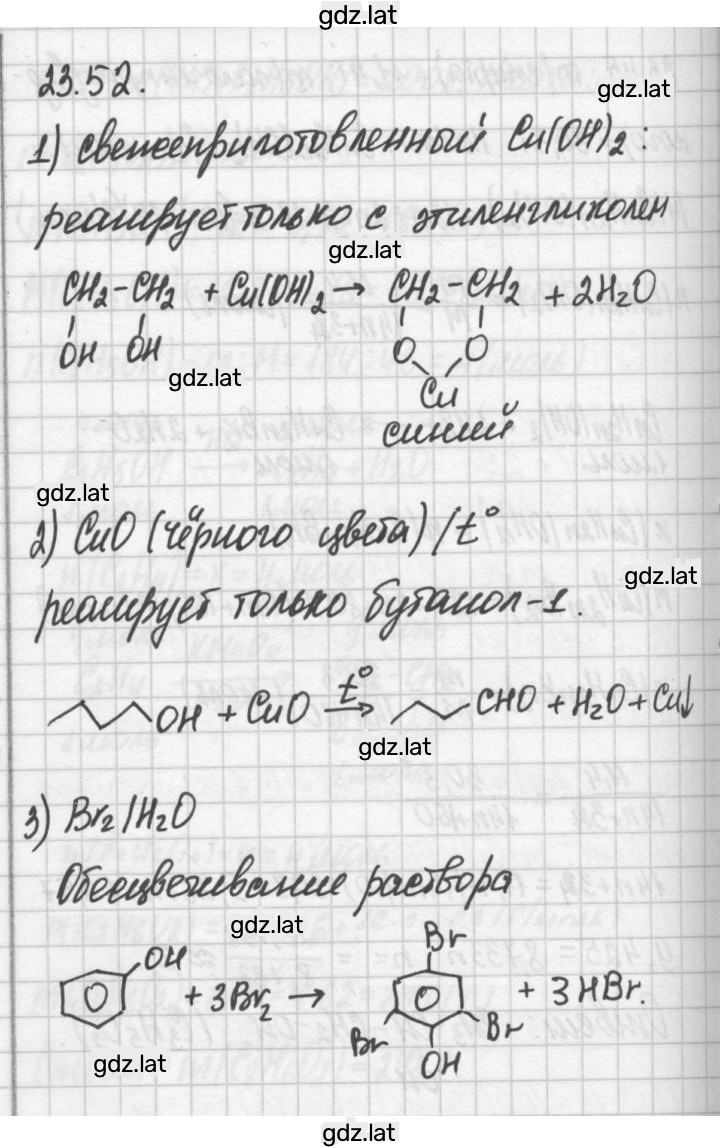 gdz.lat
23.52.
gdz.lat
1) свежеприготовленный Cu(OH)₂:
реагирует только с этиленгликолем
gdz.lat
CH₂-CH₂ + Cu(OH)₂ → CH₂-CH₂ + 2H₂O
OH OH
O O
gdz.lat
Cu
синий
gdz.lat
2) CuO (чёрного цвета) / t°
gdz.lat
реагирует только бутанол-1.
OH + CuO t° → CHO + H₂O + Cu↓
gdz.lat
3) Br₂/H₂O
Обесцвечивание раствора
gdz.lat
Br
OH
+ 3Br₂ → + 3HBr.
Br Br
gdz.lat
OH
gdz.lat